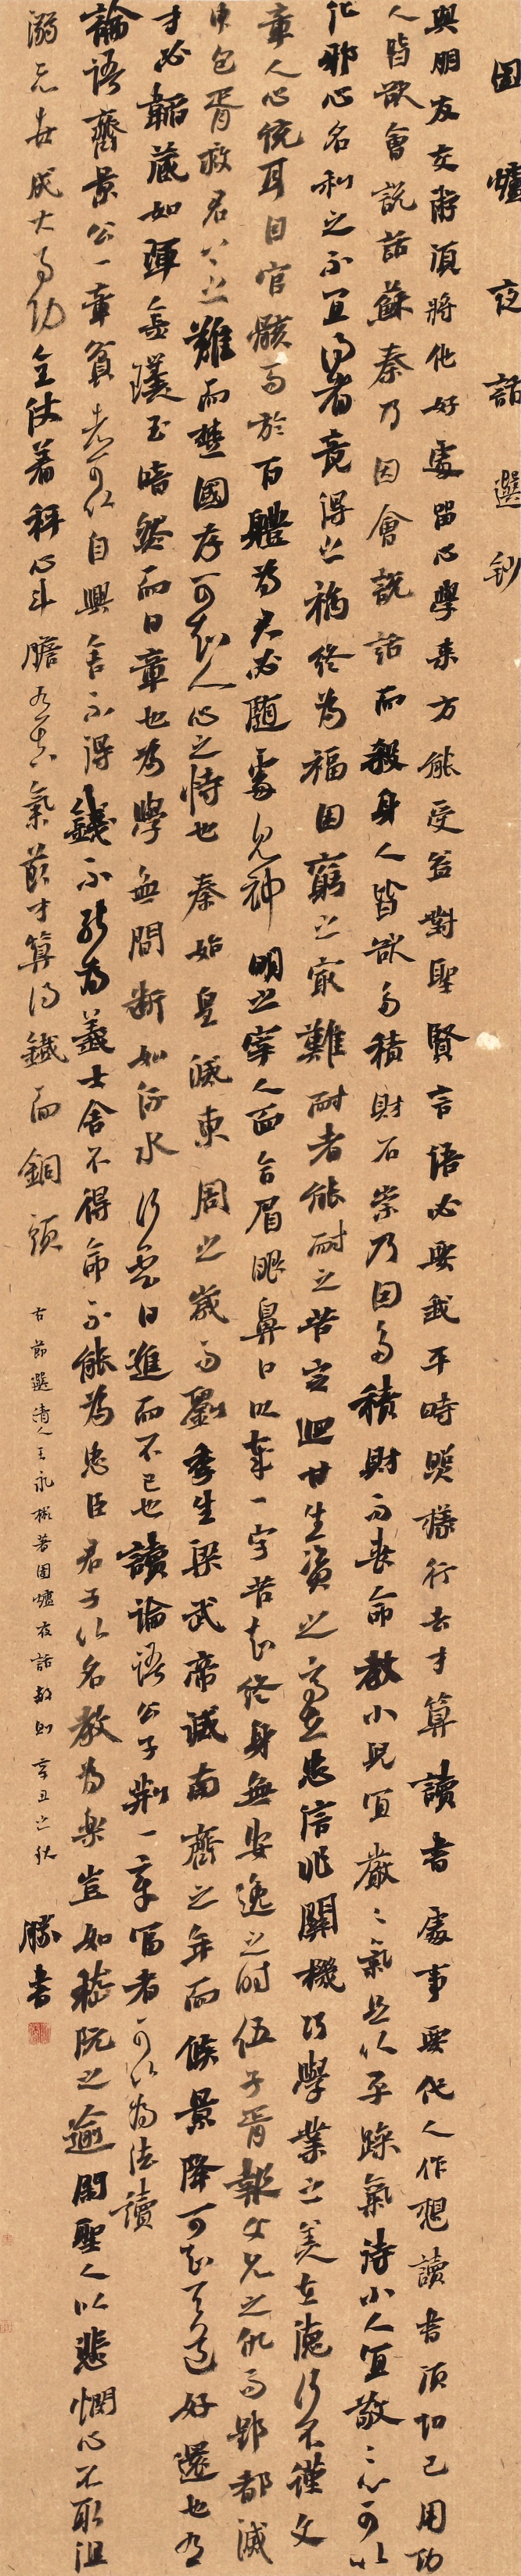 圍爐夜話選鈔
與朋友交游須將他好處留心學來方能受益對聖賢言語必要我平時照樣行去才算讀書處事要代人作想讀書須切己用功
人皆欲會說話蘇秦乃因會說話而殺身人皆欲多積財石崇乃因多積財而喪命教小兒宜嚴嚴氣足以平躁氣待小人宜敬敬心可以
化邪心名利之不宜得者竟得之禍終為福困窮之最難耐者能耐之苦定回甘生資之高在忠信非關機巧學業之美在德行不僅文
章人心統耳目官骸而於百體為君必隨處見神明之宰人面合眉眼鼻口以成一字苦知終身無安逸之時伍子胥報父兄之仇而郢都滅
申包胥救君上之難而楚國存可知人心之恃也秦始皇滅東周之歲而劉季生梁武帝滅南齊之年而侯景降可知天道好還也有
才必韜藏如渾金璞玉暗然而日章也為學無間斷如流水行雲日進而不已也讀論語公子荆一章富者可以為法讀
論語齊景公一章貧者可以自興舍不得錢不能為義士舍不得命不能為忠臣君子以名教為樂豈如嵇阮之逾閑聖人以悲憫心不取沮
溺之忘世成大事功全仗著秤心斗膽有真氣節才算得鐵面銅頭
右節選清人王永彬著圍爐夜話數則辛丑之秋
勝書